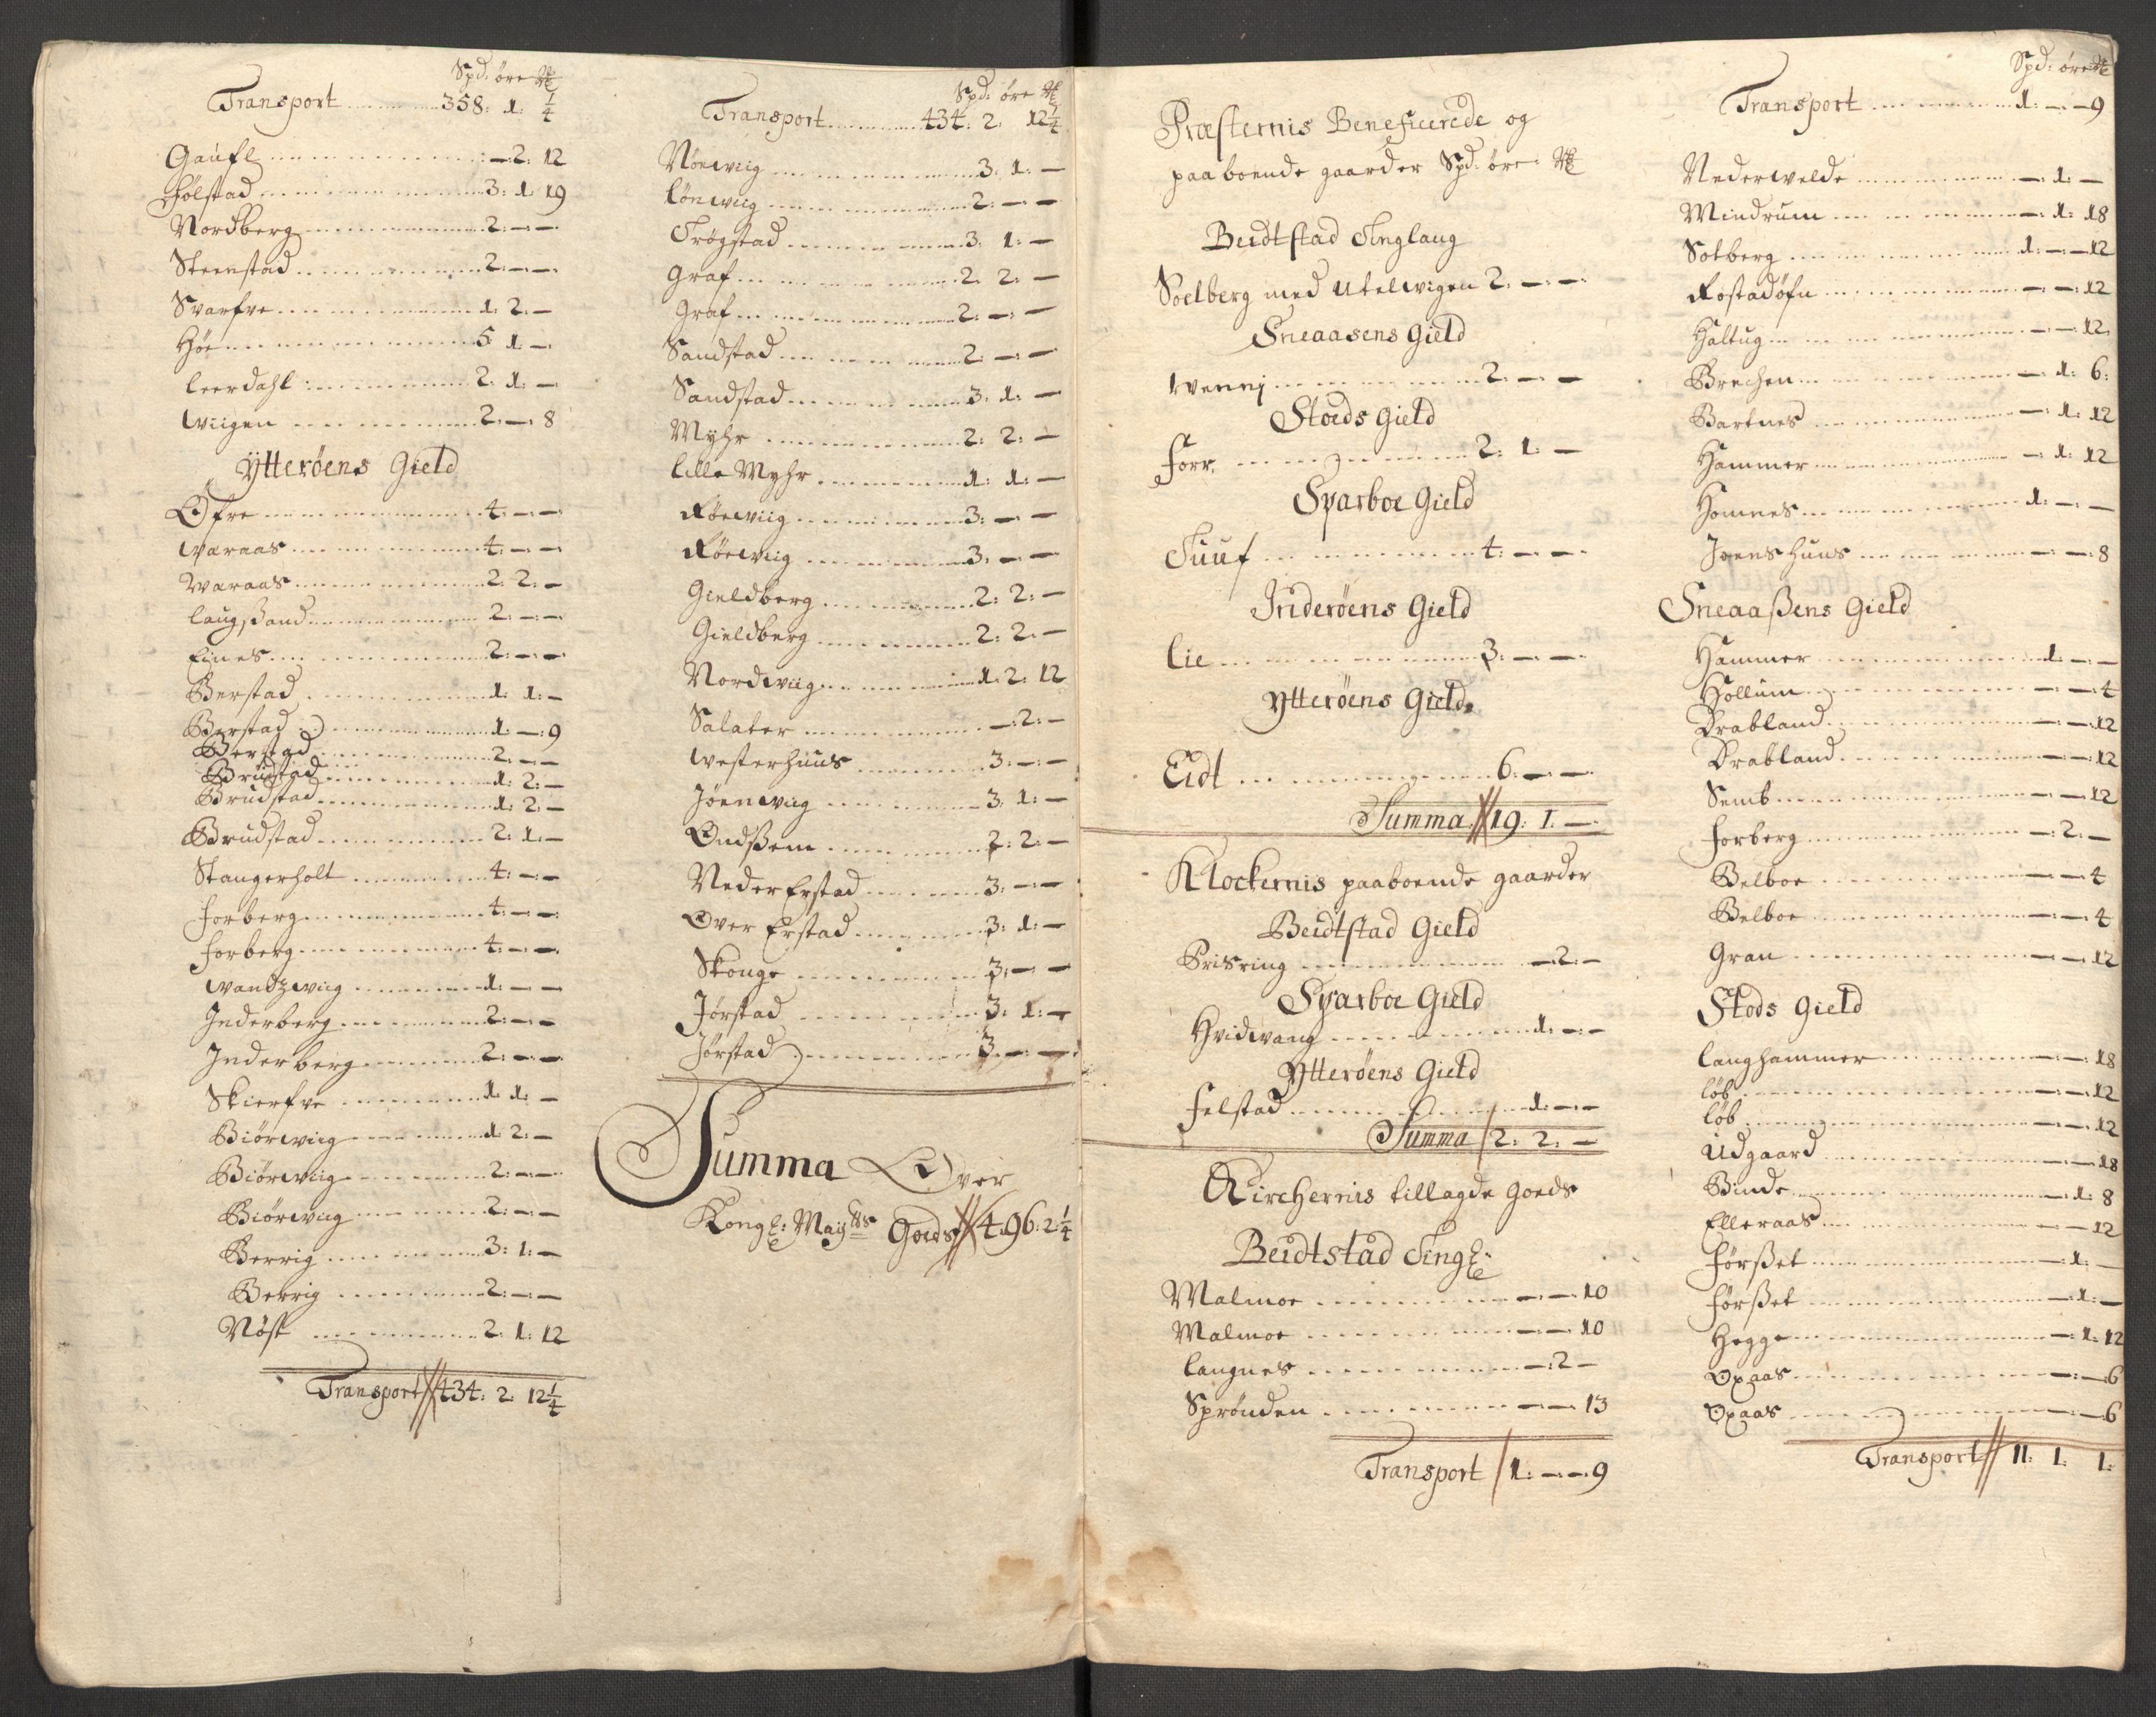 Spd: øre
Transport 358: 1: 1/4
Gaufl —: 2: 12
Følstad 3: 1: 19
Nordberg 2: —: —
Steenstad 2: —: —
Svarfve 1: 2: —
Høe 5 1: —
leerdahl 2: 1: —
wiigen 2: —: 8
Ytterøens Gield
Øfre 4: —: —
waraas 4: —: —
waraas 2: 2: —
laugßand 2: —: —
Eines 2: —: —
Berstad 1: 1: —
Berstad 1: —: 9
Berstad 2: —: —
Brudstad 1: 2: —
Brudstad 1: 2: —
Brudstad 2: 1: —
Stangerholt 4: —: —
forberg 4: —: —
forberg 4: —: —
wandzwiig 1: —: —
Inderberg 2: —: —
Inderberg 2: —: —
Skierfve 1: 1: —
Biörwiig 1: 2: —
Biörwiig 2: —: —
Biörwiig 2: —: —
Berrig 3: 1: —
Berrig 2: —: —
Nöst 2: 1: 12
Transport 434: 2: 12 1/4
Spd: øre
Transport 434: 2: 12 1/4
Nönwiig 3: 1: —
lönwiig 2: —: —
Trögstad 3: 1: —
Graf 2: 2: —
Graf 2: —: —
Sandstad 2: —: —
Sandstad 3: 1: —
Myhr 2: 2: —
lille Myhr 1: 1: —
Röewiig 3: —: —
Röewiig 3: —: —
Gieldberg 2: 2: —
Gieldberg 2: 2: —
Nordwiig 1: 2: 12
Salater —: 2: —
westerhuus 3: —: —
Jöenwiig 3: 1: —
Øndßem 2: 2: —
Neder Erstad 3: —: —
Over Erstad 3: 1: —
Skonge 3: —: —
Jørstad 3: 1: —
Jørstad 3: —: —
Summa Over
Kongl: Mayts Goeds 496: 2 1/4
Præsternis Beneficerede og
paaboende gaarder Spd: øre:
Beidtstad Tinglaug
Soelberg med Utelwigen 2: —: —
Sneaasens Gield
wennj 2: —: —
Stoeds Gield
Forr 2: 1: —
Sparboe Gield
Tuuf 4: —: —
Inderøens Gield
lie 3: —: —
Ytterøens Gield
Eidt 6: —: —
Summa 19: 1: —
Klockernis paaboende gaarder
Beidtstad Gield
Brisring —: 2: —
Sparboe Gield
Hvidwang 1: —: —
Ytterøens Gield
Felstad 1: —: —
Summa 2: 2: —
Kirchernis tillagde goeds
Beidtstad Tingl:
Malmoe —: —: 10
Malmoe —: —: 10
langnes —: 2 —
Sprönden —: —: 13
Transport 1: —: 9
Spd: øre
Transport 1: —: 9
Nederwelde —: 1: —
Mindrum —: 1: 18
Solberg 1: —: 12
Rostadöfn —: —: 12
Haltug —: —: 12
Brechen —: 1: 6:
Bartnes —: 1: 12
Hammer —: 1: 12
Homnes 1: —: —
Joenshuus —: —: 8
Sneaaßens Gield
Hammer 1: —: —
Hollum —: —: 4
Drabland —: —: 12
Drabland —: —: 12
Semb —: —: 12
Forberg —: 2: —
Belboe —: —: 4
Belboe —: —: 4
Gran —: —: 12
Stods Gield
langhammer —: —: 18
löb —: —: 12
löb —: —: 12
Udgaard —: —: 18
Binde —: 1: 8
Elleraas —: —: 12
förßet —: 1: —
förßet —: 1: —
Hegge —: 1: 12
Opaas —: —: 6
Opaas —: —: 6
Transport 11: 1: 1: